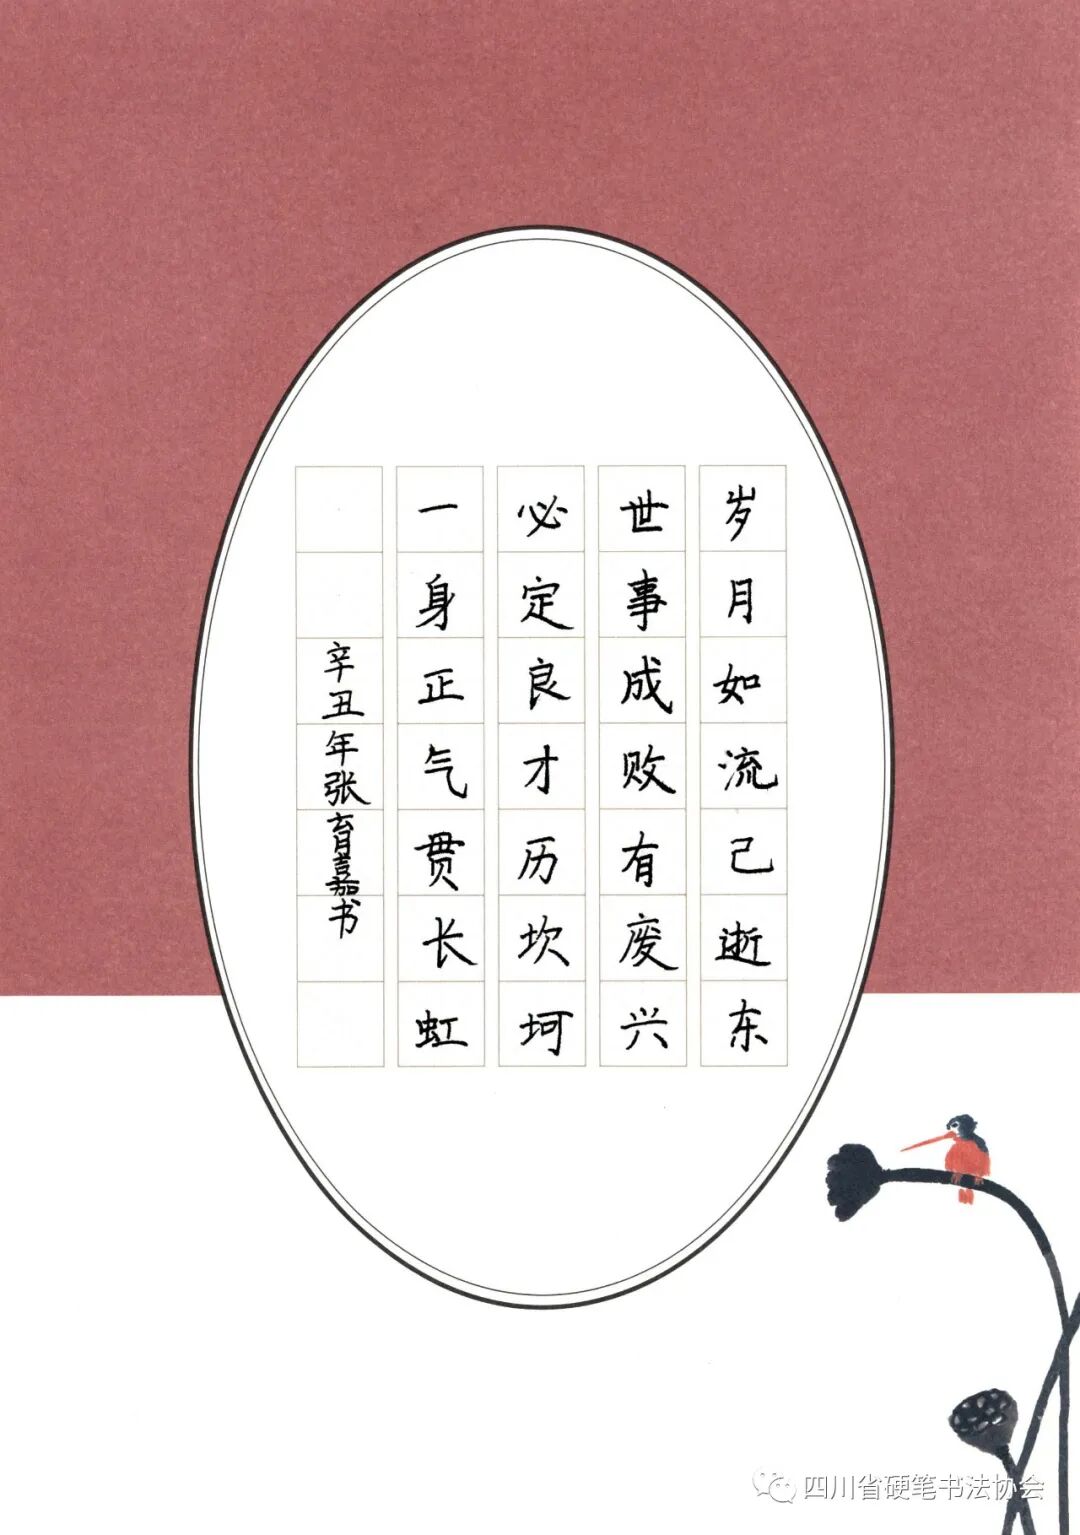 岁月如流己逝东
世事成败有废兴
必定良才历坎坷
一身正气贯长虹
辛丑年张育嘉书
四川省硬笔书法协会